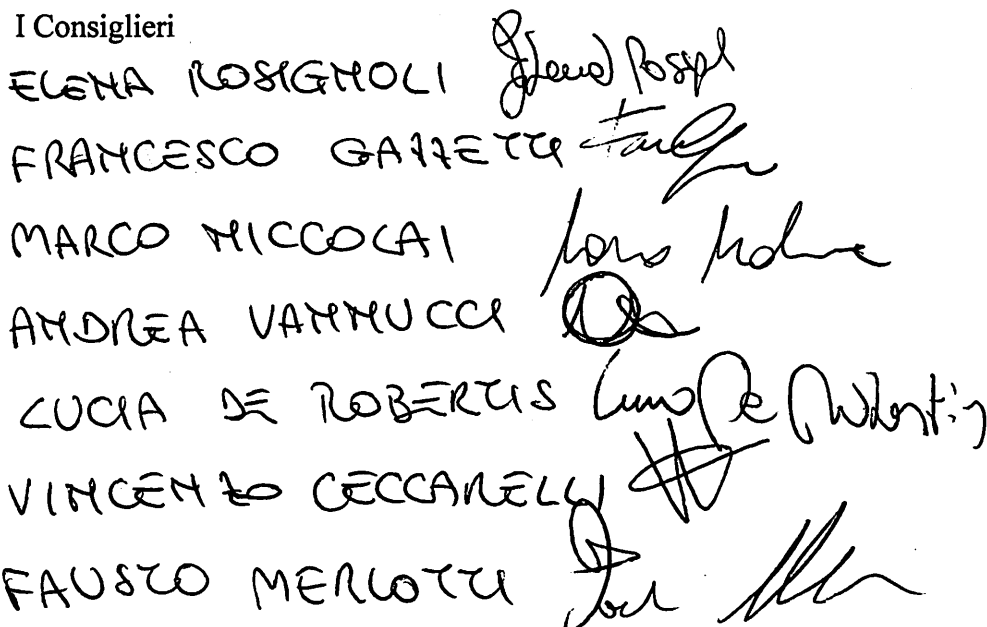 I Consiglieri
ELENA ROSIGNOLI
FRANCESCO GAZZETTI
MARCO NICCOLAI
ANDREA VANNUCCI
LUCIA DE ROBERTIS Lucia De Robertis
VINCENZO CECCARELLI
FAUSTO MERLOTTI